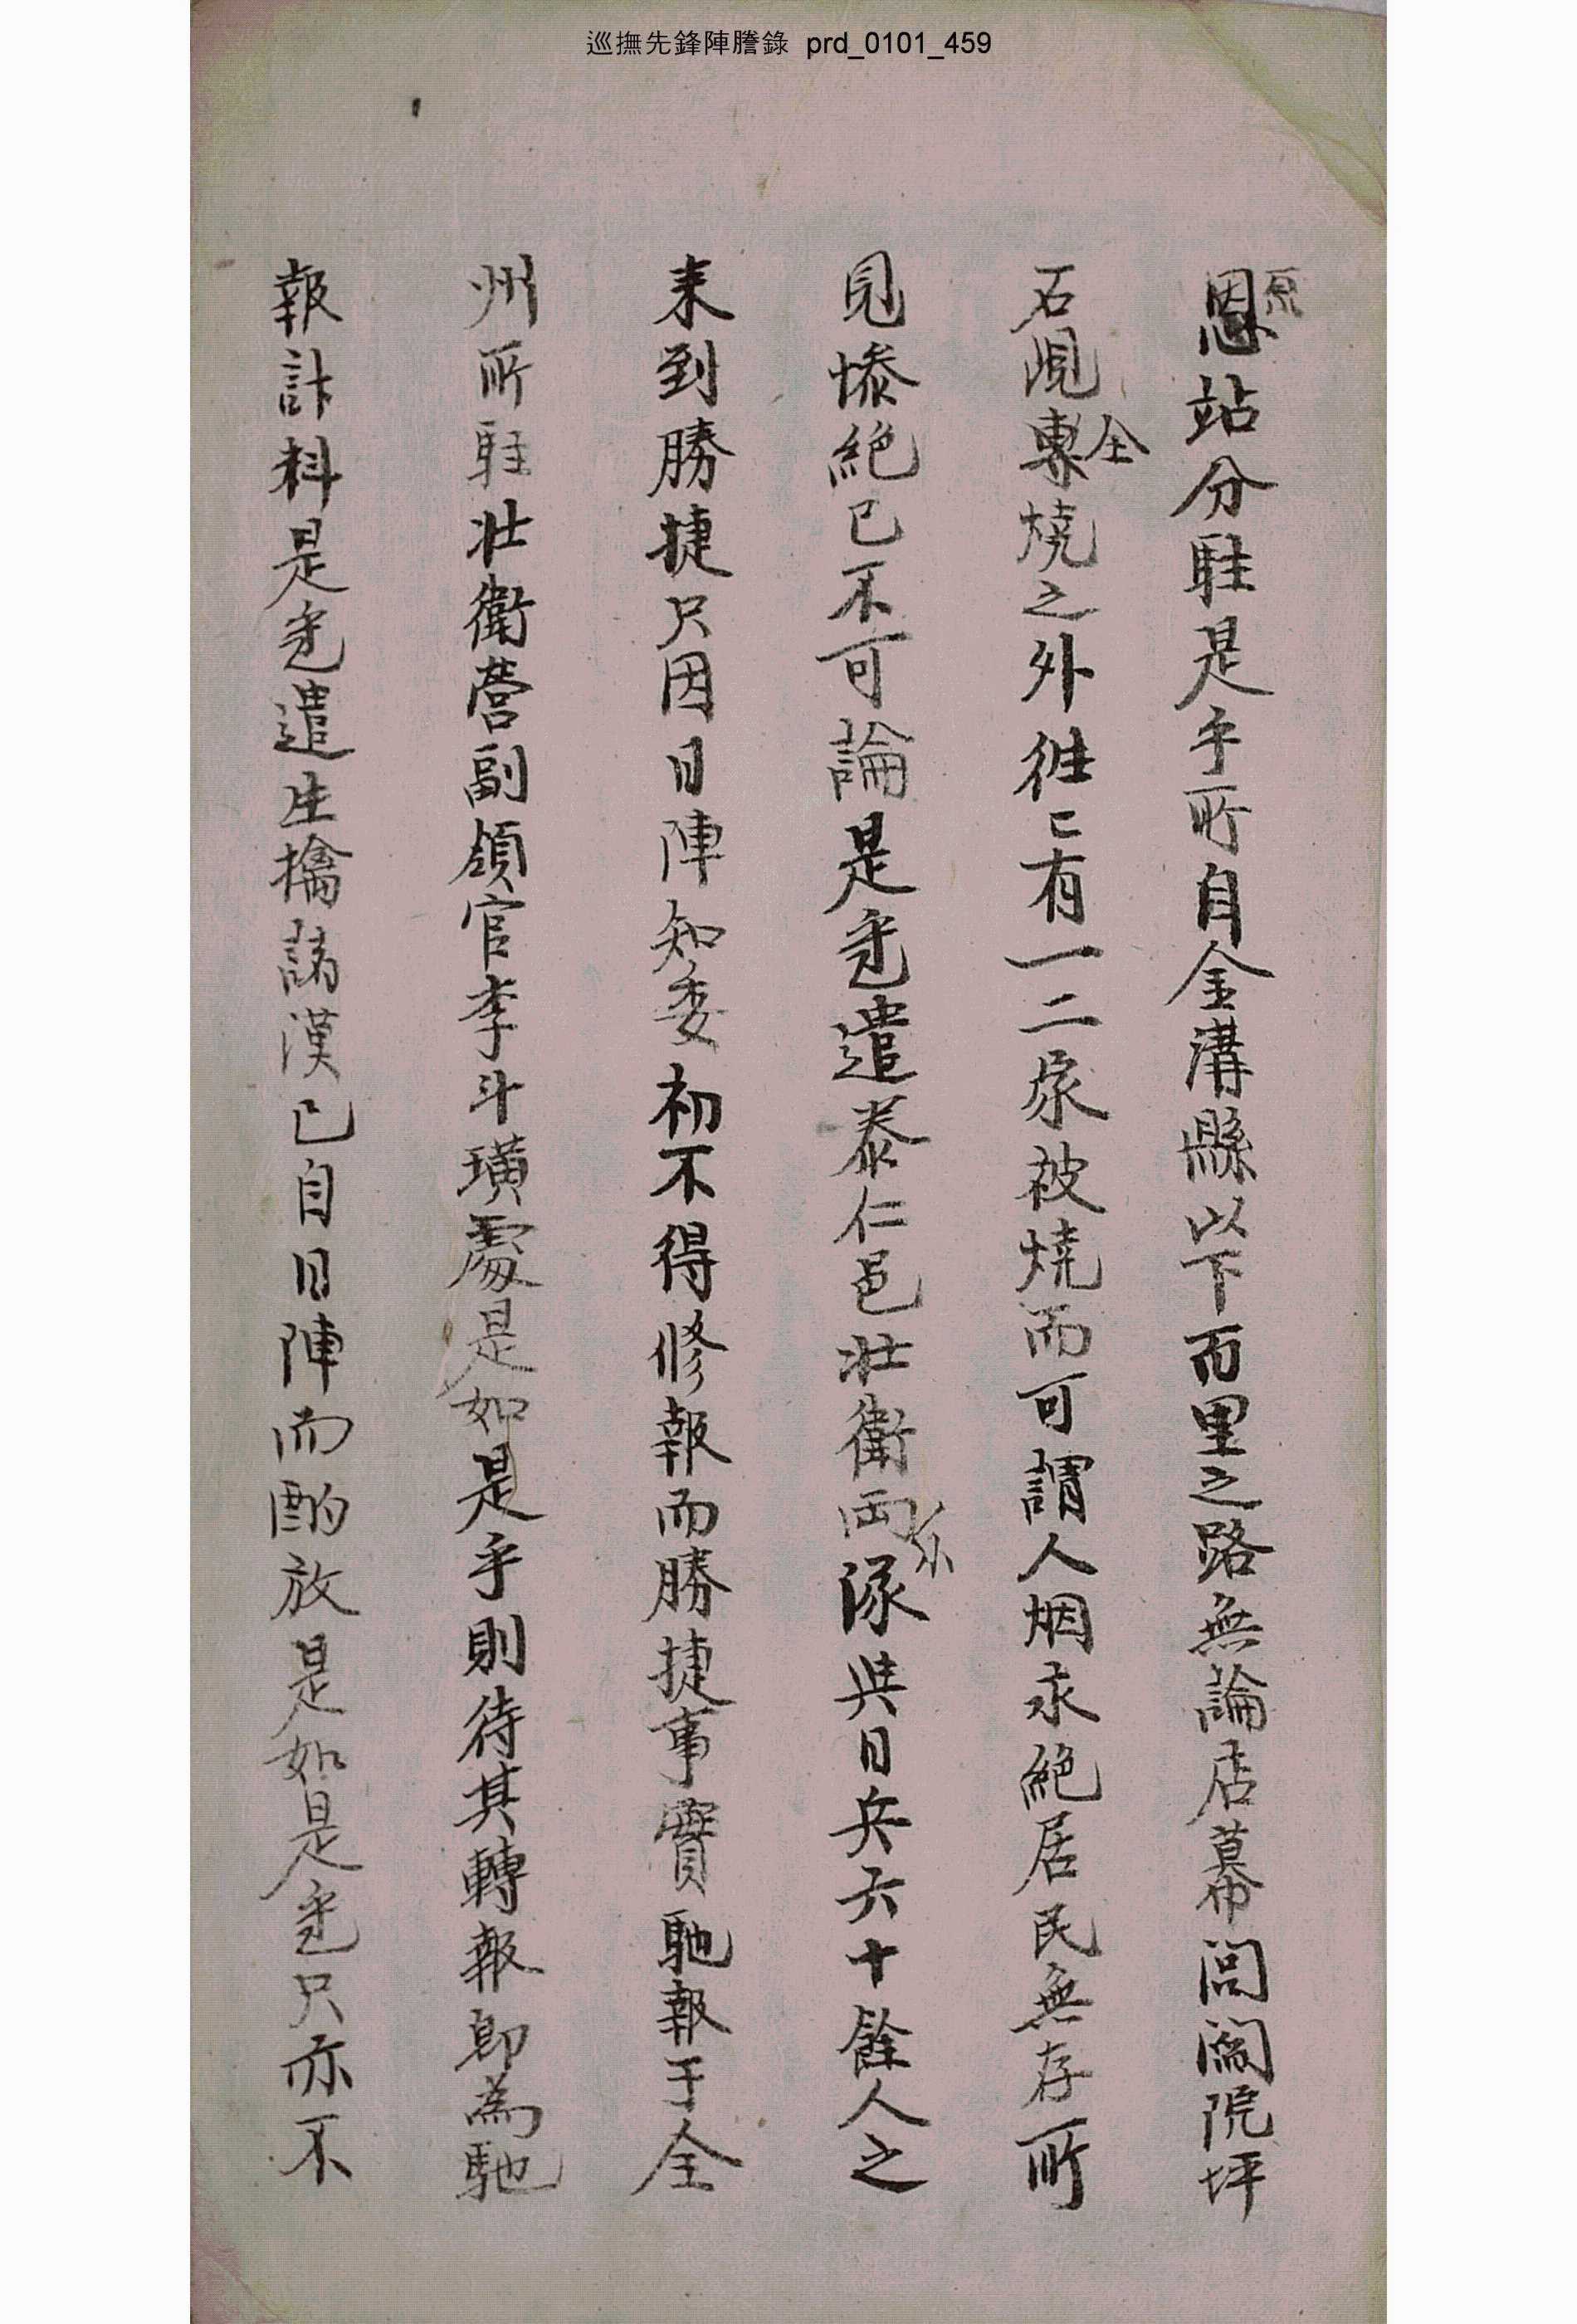 巡撫先鋒陣謄錄 prd_0101_459
恩原站分駐是乎所自金溝縣以下百里之路無論店幕閭閻院坪
石峴專全燒之外徃〻有一二家被燒而可謂人烟永絕居民無存所
見慘絕已不可論是乎遣泰仁邑壯衛兩隊與日兵六十餘人之
来到勝捷只因日陣知委初不得修報而勝捷事實馳報于全
州所駐壯衛營副領官李斗璜處是如是乎則待其轉報卽為馳
報計料是乎遣生擒諸漢已自日陣而酌放是如是乎只亦不